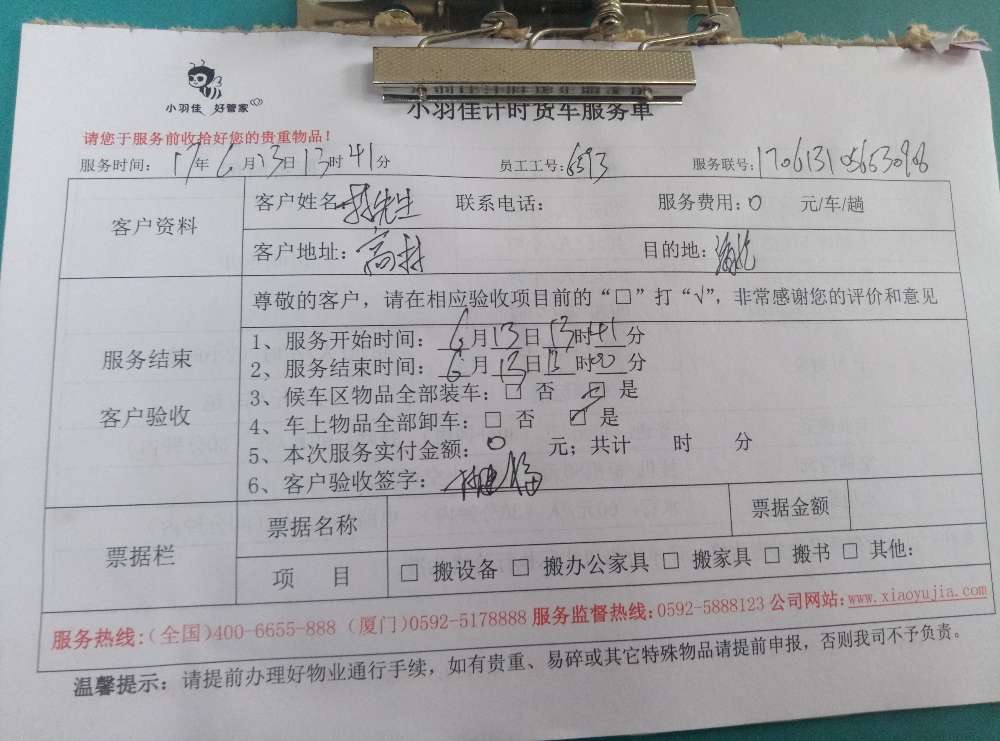 小羽佳 好管家
小羽佳计时货车服务单
请您于服务前收拾好您的贵重物品！
服务时间： 17年6月13日13时41分 员工工号：6593 服务联号：
客户资料 客户姓名 先生 联系电话： 服务费用：0 元/车/趟
客户地址：高林 目的地：
尊敬的客户，请在相应验收项目前的“□”打“√”，非常感谢您的评价和意见
服务结束
客户验收
1、服务开始时间：6月13日13时41分
2、服务结束时间：6月13日 时 分
3、候车区物品全部装车：□ 否 ☑ 是
4、车上物品全部卸车：□ 否 ☑ 是
5、本次服务实付金额：0 元；共计 时 分
6、客户验收签字：
票据栏 票据名称 票据金额
项 目 □ 搬设备 □ 搬办公家具 □ 搬家具 □ 搬书 □ 其他：
服务热线：（全国）400-6655-888 （厦门）0592-5178888 服务监督热线：0592-5888123 公司网站：www.xiaoyujia.com
温馨提示：请提前办理好物业通行手续，如有贵重、易碎或其它特殊物品请提前申报，否则我司不予负责。